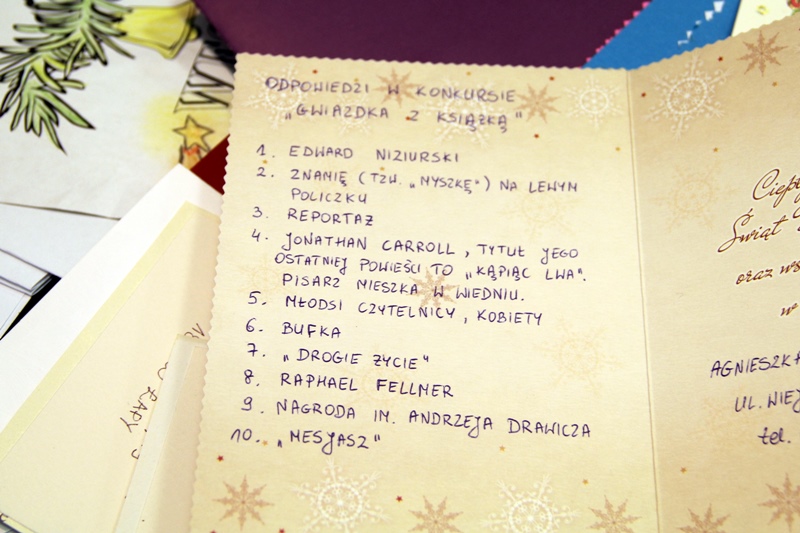 ODPOWIEDZI W KONKURSIE
„GWIAZDKA Z KSIĄŻKĄ"
1. EDWARD NIZIURSKI
2. ZNAMIĘ (TZW. „MYSZKĘ") NA LEWYM
POLICZKU
3. REPORTAŻ
4. JONATHAN CARROLL, TYTUŁ JEGO
OSTATNIEJ POWIEŚCI TO „KĄPIĄC LWA".
PISARZ MIESZKA W WIEDNIU.
5. MŁODSI CZYTELNICY, KOBIETY
6. BUFKA
7. „DROGIE ŻYCIE"
8. RAPHAEL FELLMER
9. NAGRODA IM. ANDRZEJA DRAWICZA
10. „MESJASZ"
Świąt
oraz
w
AGNIESZKA
UL. WIEJ
tel.
ŁAPY